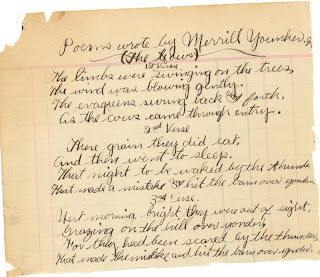 Poems wrote by Merrill Younker
(The Cows)
1st Verse
The limbs were swinging on the trees
The wind was blowing gently.
The evaquens swing back and forth.
As the cows came through entry.
2nd Verse
There grain they did eat,
And then went to sleep.
That night to be waked by the thunder
That made a mistake and hit the barn over yonder.
3rd Verse.
Next morning bright they were out of sight.
Grazing on the hill over yonder
For they had been scared by the thunder,
That made the mistake and hit the barn over yonder.